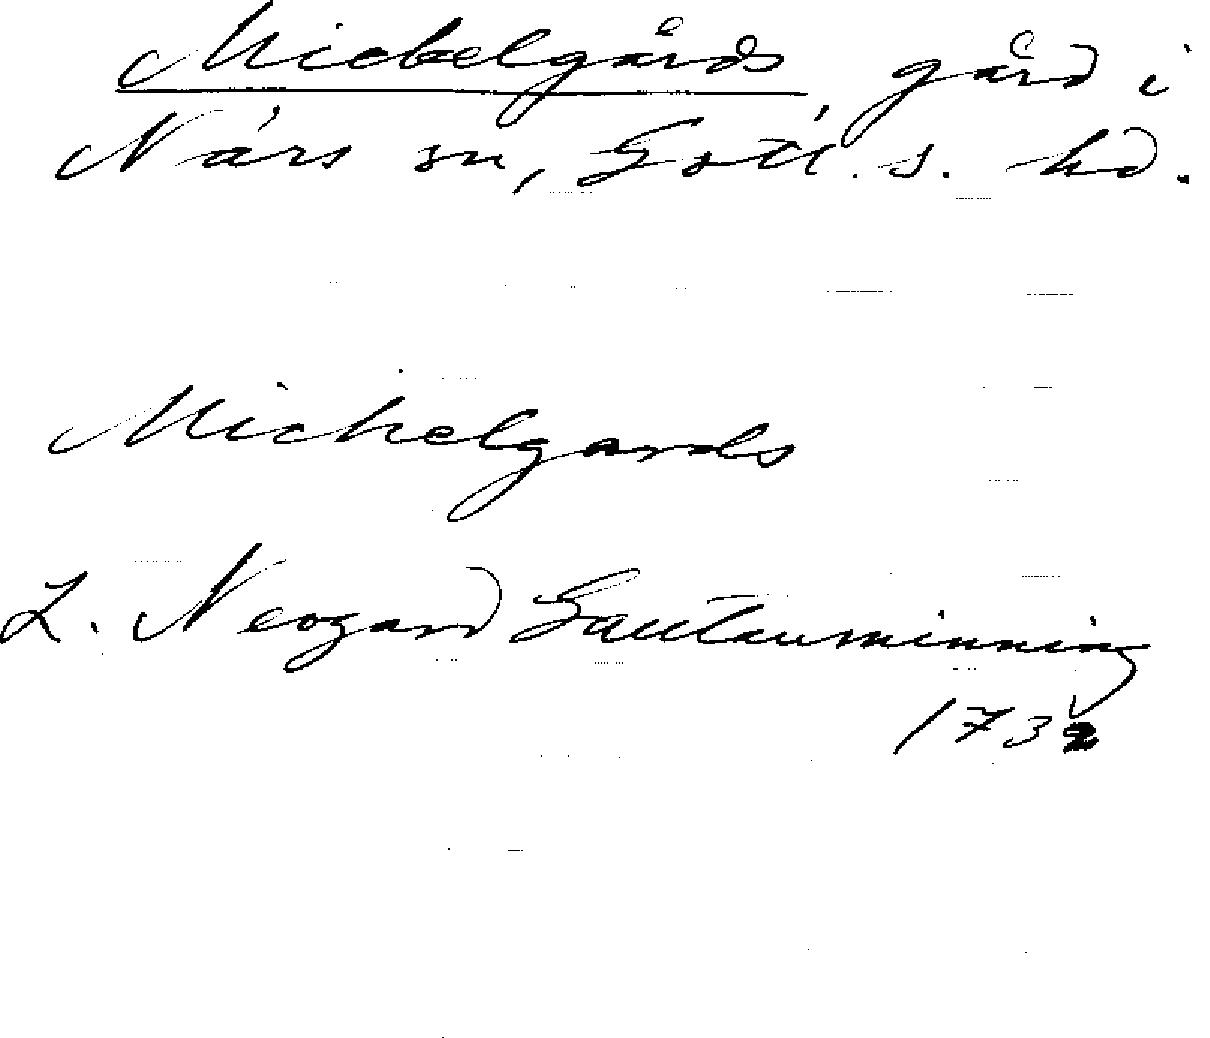 Mickelgårds, gård i
Närs sn, Gotl. s. hd.
Michelgards
L. Neogard Gautauminning
1732